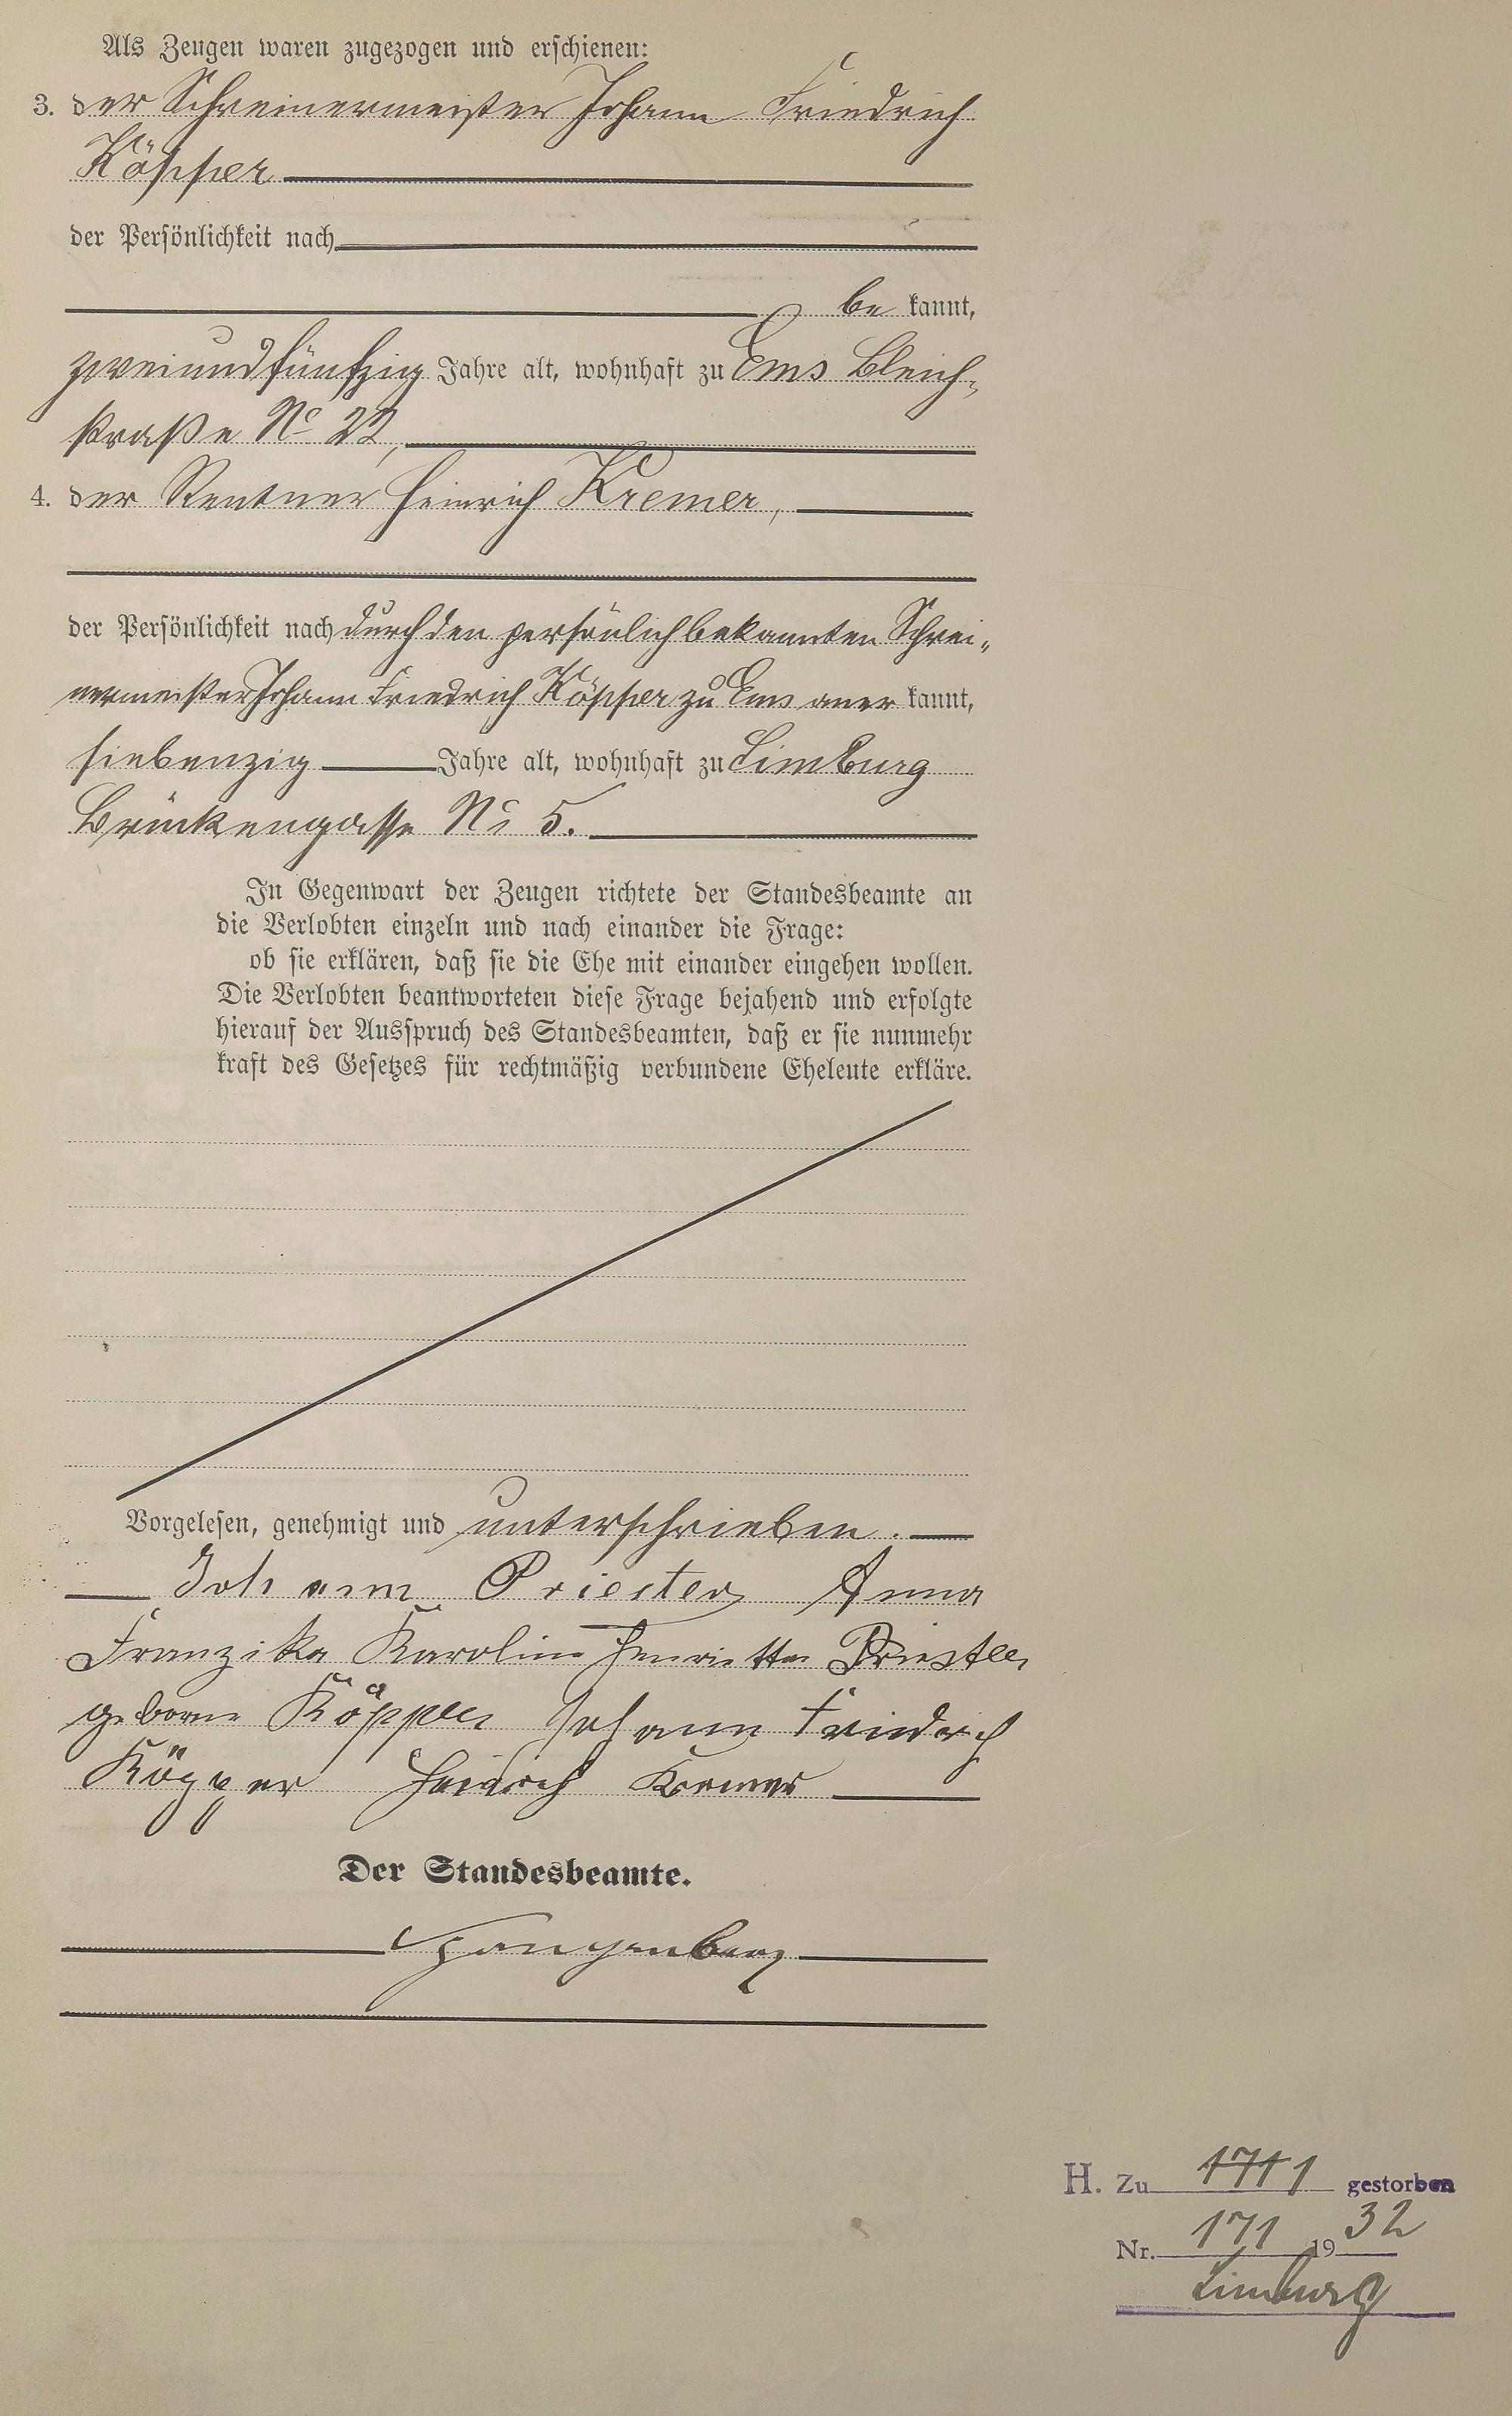 Als Zeugen waren zugezogen und erschienen:
3. der Schreinermeister Johann Friedrich
Köpper
der Persönlichkeit nach
be kannt,
zweiundfünfzig Jahre alt, wohnhaft zu Ems Bleich-
straße No 22,
4. der Rentner Heinrich Kremer,
der Persönlichkeit nach durch den persönlich bekannten Schrei-
nermeister Johann Friedrich Köpper zu Ems aner kannt,
siebenzig Jahre alt, wohnhaft zu Limburg
Brückengasse No 5.
In Gegenwart der Zeugen richtete der Standesbeamte an
die Verlobten einzeln und nach einander die Frage:
ob sie erklären, daß sie die Ehe mit einander eingehen wollen.
Die Verlobten beantworteten diese Frage bejahend und erfolgte
hierauf der Ausspruch des Standesbeamten, daß er sie nunmehr
kraft des Gesetzes für rechtmäßig verbundene Eheleute erkläre.
Vorgelesen, genehmigt und unterschrieben.
Johann Priester Anna
Franzika Karoline Henriette Priester
geborne Köpper Johann Friedrich
Köpper Heinrich Kremer
Der Standesbeamte.
Spangenberg
H. Zu 1711 gestorben
Nr. 171 1932
Limburg